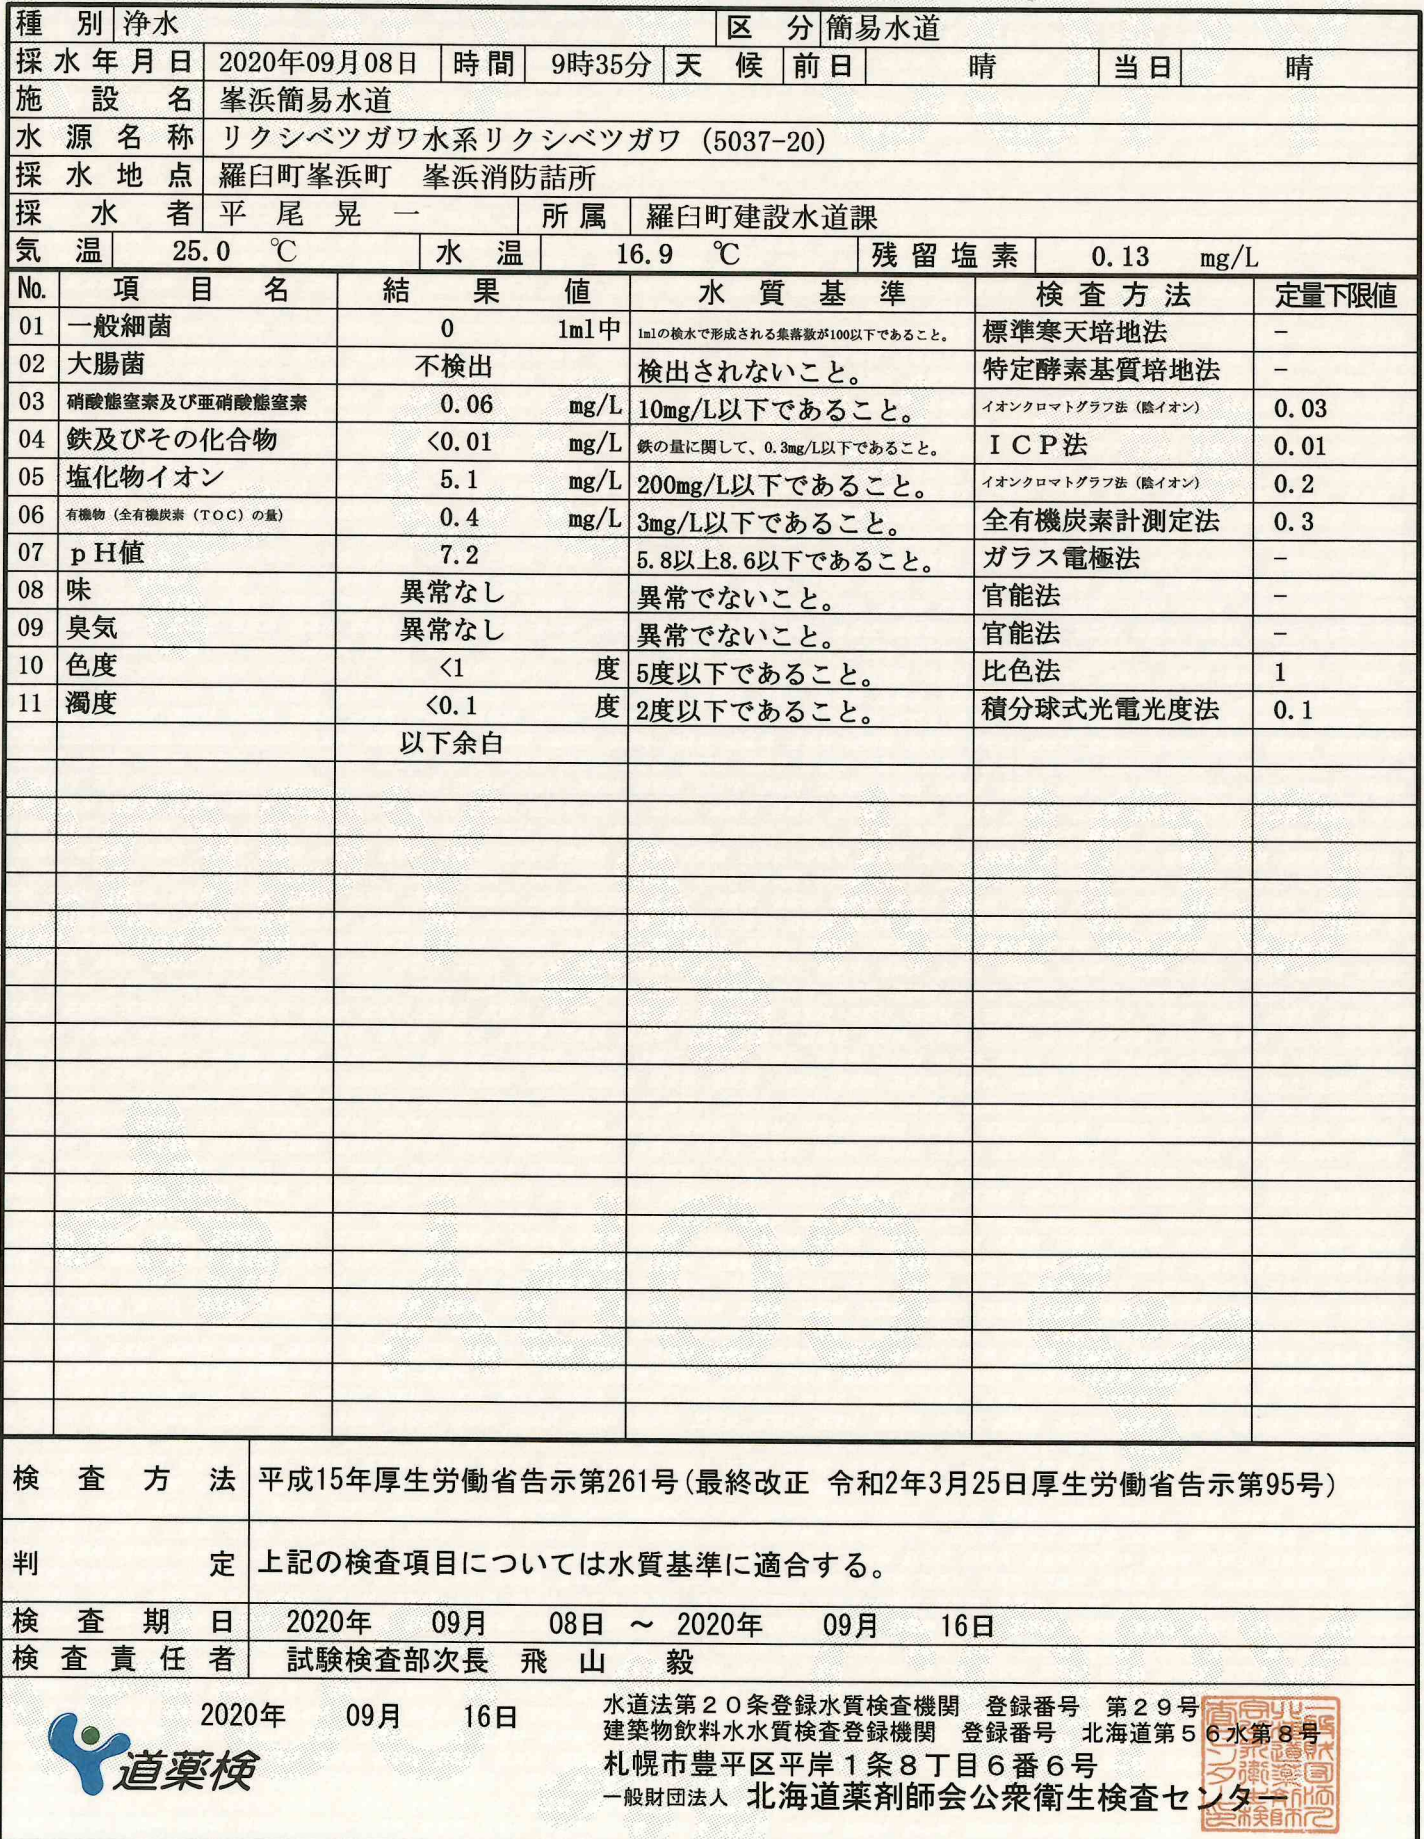 種別 浄水 区分 簡易水道
採水年月日 2020年09月08日 時間 9時35分 天候 前日 晴 当日 晴
施設名 峯浜簡易水道
水源名称 リクシベツガワ水系リクシベツガワ (5037-20)
採水地点 羅臼町峯浜町 峯浜消防詰所
採水者 平尾晃一 所属 羅臼町建設水道課
気温 25.0 ℃ 水温 16.9 ℃ 残留塩素 0.13 mg/L
No. 項目名 結果値 水質基準 検査方法 定量下限値
01 一般細菌 0 1ml中 1mlの検水で形成される集落数が100以下であること。 標準寒天培地法 −
02 大腸菌 不検出 検出されないこと。 特定酵素基質培地法 −
03 硝酸態窒素及び亜硝酸態窒素 0.06 mg/L 10mg/L以下であること。 イオンクロマトグラフ法（陰イオン） 0.03
04 鉄及びその化合物 <0.01 mg/L 鉄の量に関して、0.3mg/L以下であること。 ＩＣＰ法 0.01
05 塩化物イオン 5.1 mg/L 200mg/L以下であること。 イオンクロマトグラフ法（陰イオン） 0.2
06 有機物（全有機炭素（ＴＯＣ）の量） 0.4 mg/L 3mg/L以下であること。 全有機炭素計測定法 0.3
07 ｐＨ値 7.2 5.8以上8.6以下であること。 ガラス電極法 −
08 味 異常なし 異常でないこと。 官能法 −
09 臭気 異常なし 異常でないこと。 官能法 −
10 色度 <1 度 5度以下であること。 比色法 1
11 濁度 <0.1 度 2度以下であること。 積分球式光電光度法 0.1
以下余白
検査方法 平成15年厚生労働省告示第261号(最終改正 令和2年3月25日厚生労働省告示第95号)
判定 上記の検査項目については水質基準に適合する。
検査期日 2020年 09月 08日 ～ 2020年 09月 16日
検査責任者 試験検査部次長 飛山 毅
2020年 09月 16日
水道法第２０条登録水質検査機関 登録番号 第２９号
建築物飲料水水質検査登録機関 登録番号 北海道第５６水第８号
札幌市豊平区平岸１条８丁目６番６号
一般財団法人 北海道薬剤師会公衆衛生検査センター
道薬検